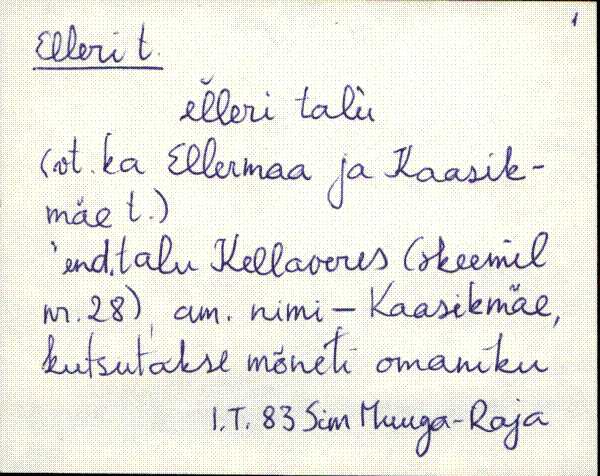 1
Elleri t.
el̆leri talù
(vt. ka Ellermaa ja Kaasik-
mäe t.)
'end. talu Kellaveres (skeemil
nr. 28), am. nimi – Kaasikmäe,
kutsutakse mõneti omaniku
I.T. 83 Sim Muuga-Roja